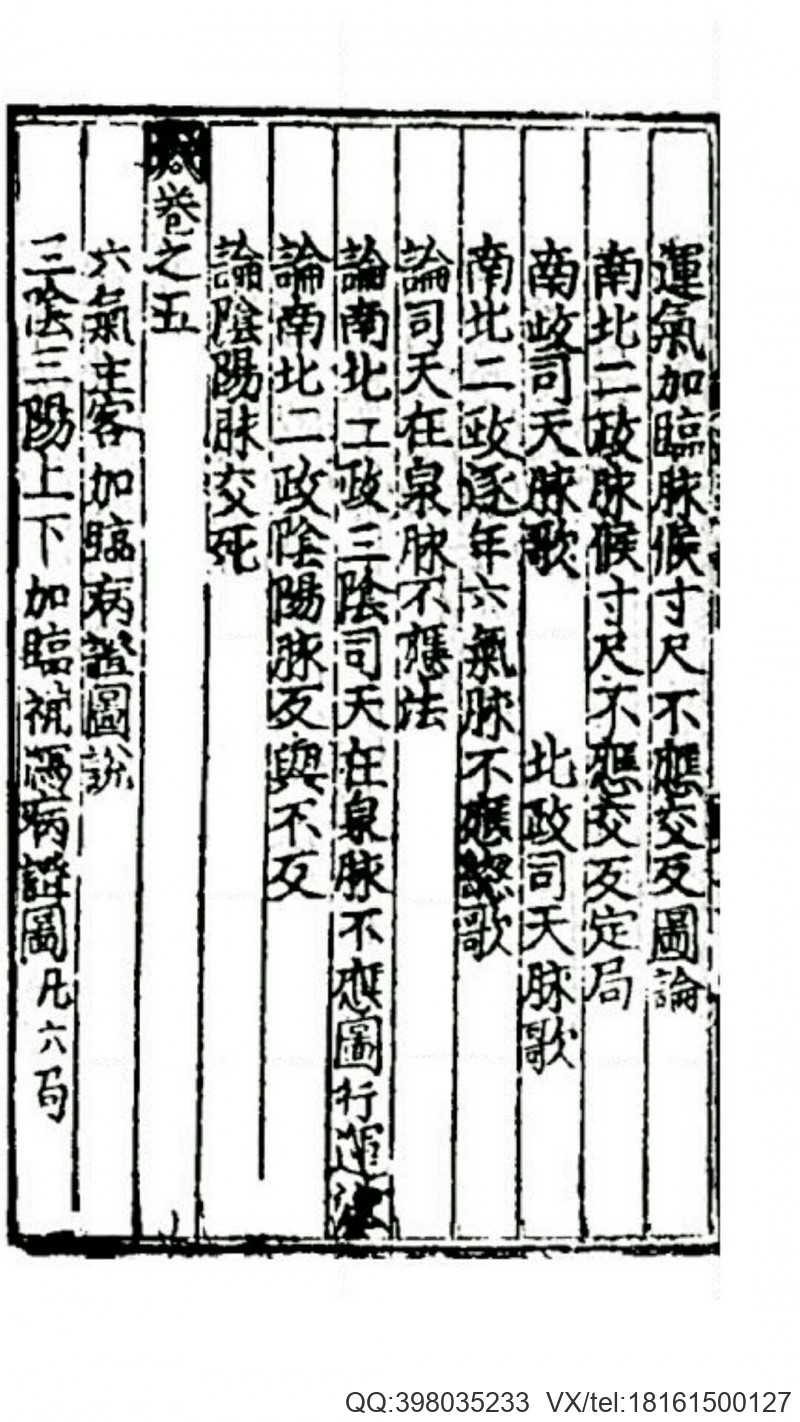 運氣加臨脉候寸尺不應交反圖論
南北二政脉候寸尺不應交反定局
南政司天脉歌 北政司天脉歌
南北二政逐年六氣脉不應揔歌
論司天在泉脉不應法
論南北二政三陰司天在泉脉不應圖行運
論南北二政陰陽脉反與不反
論陰陽脉交死
卷之五
六氣主客加臨病證圖說
三陰三陽上下加臨病證圖凡六局
QQ:398035233 VX/tel:18161500127